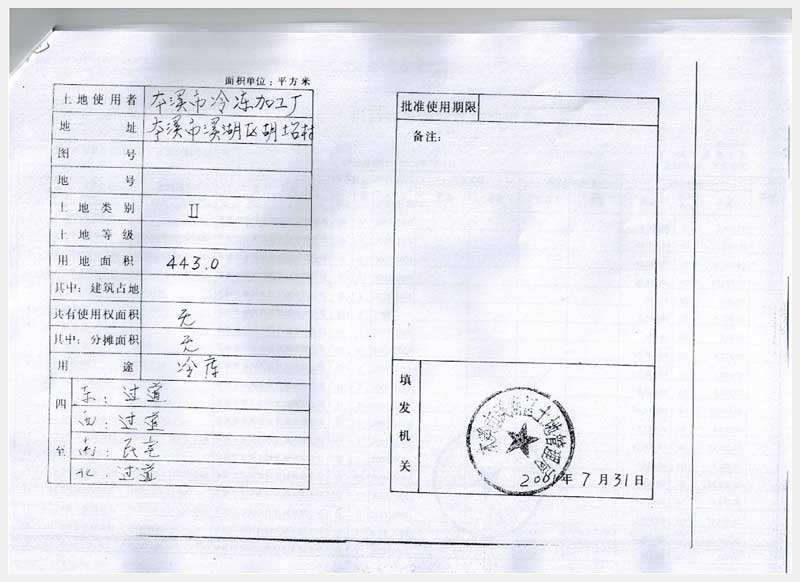 面积单位：平方米
土地使用者 本溪市冷冻加工厂
地址 本溪市溪湖区胡
图号
地号
土地类别 II
土地等级
用地面积 443.0
其中：建筑占地
共有使用权面积 无
其中：分摊面积 无
用途 冷库
四至
东：过道
西：过道
南：民宅
北：过道
批准使用期限
备注：
填发机关
土地管理
2001年7月31日